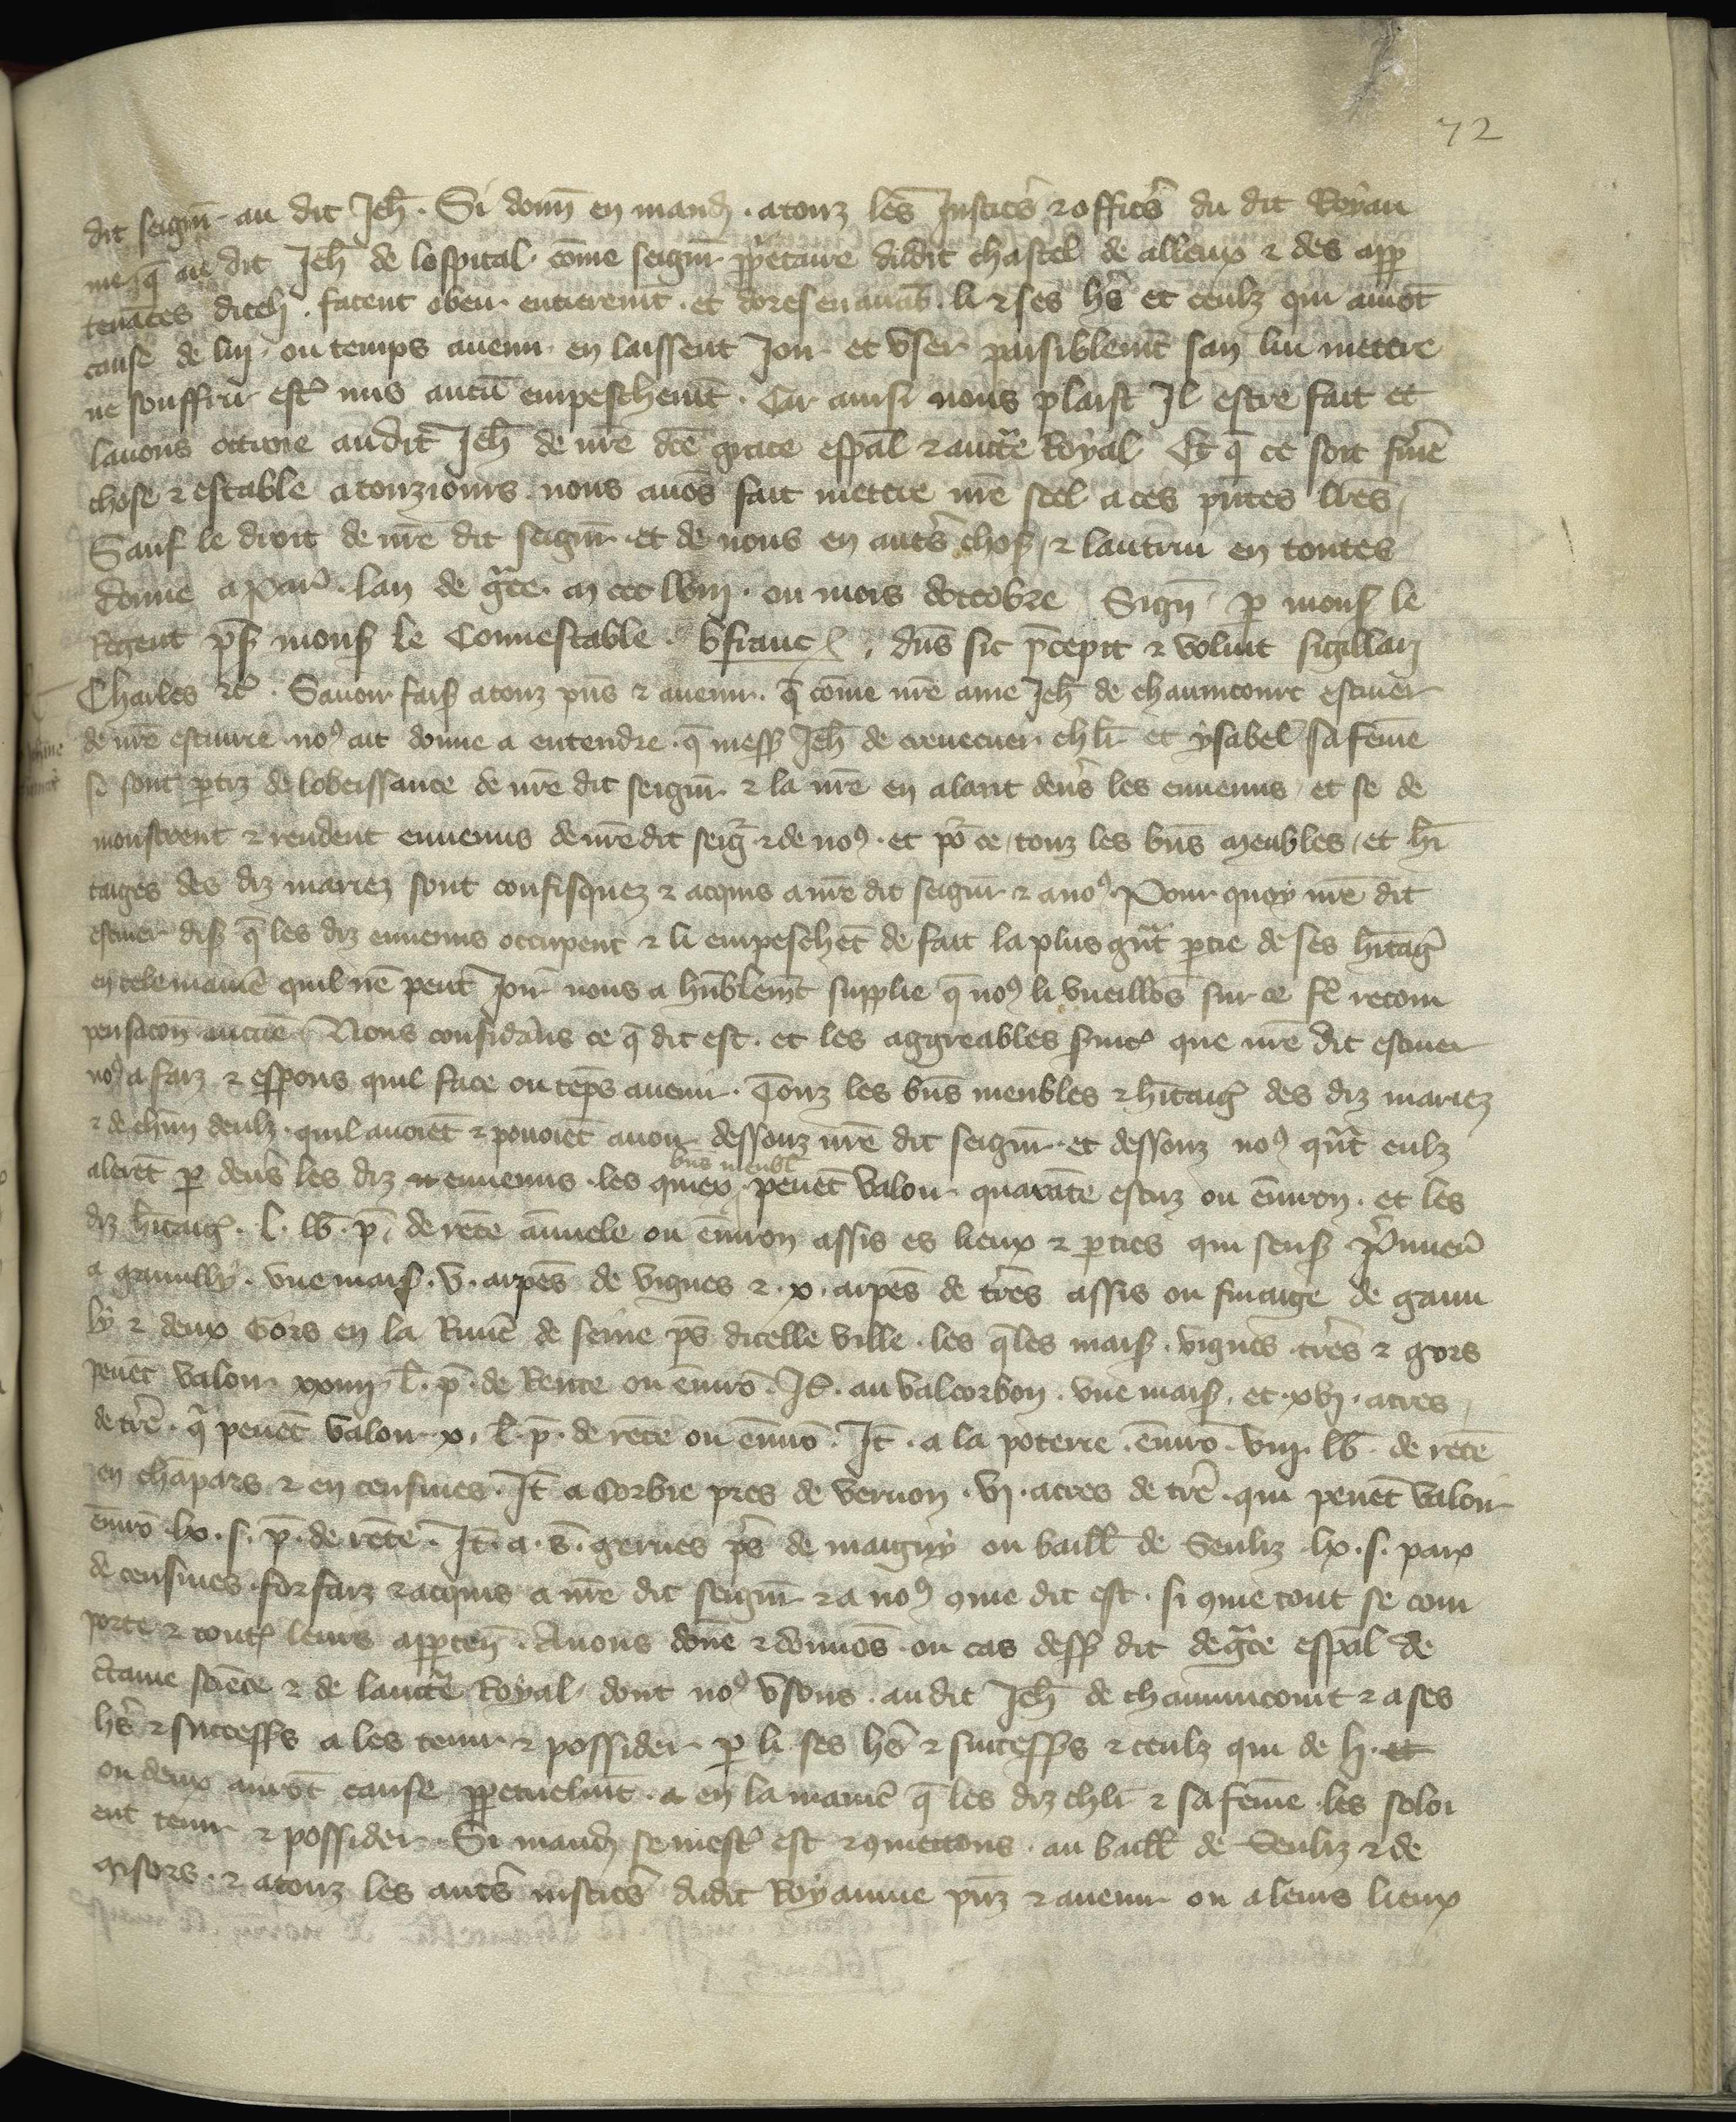 72
dit seigñ au dit Jeh̃ . Si donñ en mand̃ . atouz les Justic̃s ⁊ offic̃s du dit Royau
me q̃ au dit Jeh̃ de lospital . cõme seigñ ꝓp̃etaire dudit chastel de alleux ⁊ des app
tenãces dicel̃ . facent obeir entieremt̃ . et dores en auãt . li ⁊ ses hr̃s et ceulz qui aurõt
cause de luy . ou temps auenir en laissent Joir et vser paisiblemt̃ san luy mettre
ne souffrir estr̃ mis aucũ empeschemt̃ . Car ainsi nous plaist Jl estre fait et
lauons ottroie audit Jeh̃ de nr̃e dc̃e grace esp̃al ⁊ auctẽ Royal Et q̃ ce soit fer̃me
chose ⁊ estable atouziours nous auõs fait mettre nr̃e seel a ces pñtes lr̃es
Sauf le droit de nr̃e dit seigñ et de nous en autr̃s chos̃ ⁊ lautruy en toutes
donne a par̃ . lan de gr̃ce . m ccc lviij . ou mois doctobre Sign̄ p monsˢ le
Regent p̃s̃ monsˢ le Connestable . b̃ françˢ . dñs sic p̃cepit ⁊ voluit sigillari
Charles ⁊c̃ . Sauoir fais̃ atouz pñs ⁊ auenir . q̃ cõme nr̃e ame Jeh̃ de chaumcourt escuier
de nr̃e escuirie noꝰ ait donne a entendre . q̃ mess̃ Jeh̃ de creuecuer chlr̃ et ysabel safẽme
se sont ptiz de lobeissance de nr̃e dit seigñ ⁊ la nr̃e en alant deũs les ennemis et se de
monstrent ⁊ rendent ennemis de nr̃e dit seig̃ ⁊ de noꝰ . et po᷑ ce touz les bñs meubles et hr̃i
taiges des diz mariez sont confisquez ⁊ acquis a nr̃e dit seigñ ⁊ a noꝰ Pour quoy nr̃e dit
escuier dis̃ q̃ les diz ennemis occupent ⁊ li empeschẽt de fait la plus gñt ptie de ses hr̃itag̃
en tele maniẽ quil nẽ peut Joir nous a hũblemt̃ supplie q̃ noꝰ li vueillõs sur ce fẽ recom
pensacon̄ aucũe Nous considr̃ãs ce q̃ dit est . et les aggreables s̃uic̃ que nr̃e dit escuier
noꝰ a faiz ⁊ esp̃ons quil face ou tẽps auenir . Touz les bñs meubles ⁊ hr̃itaig̃ des diz mariez
⁊ de chũn deulz . quil auoiẽt ⁊ pouoiẽt auoir dessouz nr̃e dit seigñ et dessouz noꝰ qñt eulz
bñs meubl̃
alerẽt p deũs les diz ennemis . les quiex peuẽt valoir quarãte escuz ou ẽuiron . et les
diz hr̃itaig̃ . l . lb̃ . p̃ . de rẽte ãnuele ou ẽuiron assis es lieux ⁊ pties qui sens̃ P̃mieř̃
a gamilly . vne mais̃ . v . arpẽs de vignes ⁊ . x . arpẽs de tr̃es assis ou finaige de gami
ly ⁊ deux Gors en la Riuiẽ de seine p̃s dicelle ville . les q̃les mais̃ . vignes tr̃es ⁊ gors
peuẽt valoir xxiiij l̃ . p̃ . de Rente ou ẽuirõ . Jt̃ . au valcorbon . vne mais̃ . et . xvj . acres
de tr̃e . qͥ peuẽt valoir . x . l̃ . p̃ . de rẽte ou ẽuirõ . Jt̃ . a la poterie . ẽuirõ . viij . lb̃ . de rẽte
en chãpars ⁊ en censiues . Jt̃ a Corbie pres de vernon . vj . acres de tr̃e . qui peuẽt valoir
ẽuirõ lx . s . p̃ . de rẽte . Jt̃ . a . s̃ . geruẽs p̃s de maigny ou baill̃ de Senliz lx . s . parx
de censiues . forfaiz ⁊ acquis a nr̃e dit seigñ ⁊ a noꝰ ꝯme dit est . si ꝯme tout se com
porte ⁊ toutˢ leurs apptem̃ . Auons dõne ⁊ donnõs . ou cas dess̃ dit de gr̃ce esp̃al de
c̃taine sciẽce ⁊ de lauctẽ Royal dont noꝰ vsons . au dit Jeh̃ de chaumcourt ⁊ a ses
hr̃s ⁊ success̃s a les tenir ⁊ possider p li ses hr̃s ⁊ success̃s ⁊ ceulz qui de li . et
ou deux aurõt cause ꝑpetuelmt̃ . en la maniẽ q̃ les diz chlr̃ ⁊ sa fẽme les soloi
ent tenir ⁊ possider . Si mand̃ se mestˢ est ⁊ ꝯmettons . au baill̃ de Senliz ⁊ de
gisors . ⁊ atouz les autr̃s iustic̃s dudit Royaume pñz ⁊ auenir ou a leurs lieux